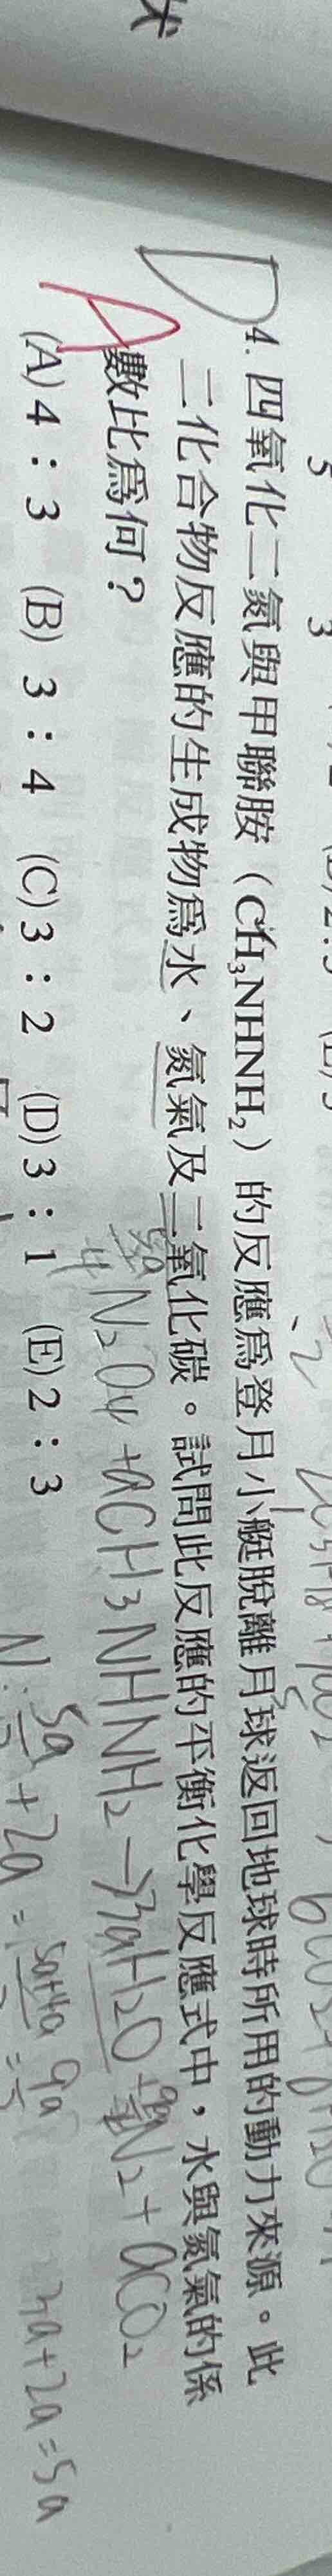 D
4. 四氧化二氮與甲聯胺（CH₃NHNH₂）的反應為登月小艇脫離月球返回地球時所用的動力來源。此
二化合物反應的生成物為水、氮氣及二氧化碳。試問此反應的平衡化學反應式中，水與氮氣的係
數比為何？
A
N₂O₄ + aCH₃NHNH₂ → 3aH₂O + N₂ + aCO₂
(A) 4：3 (B) 3：4 (C) 3：2 (D) 3：1 (E) 2：3
N: 5a + 2a = 5a+4a 9a
3a+2a=5a